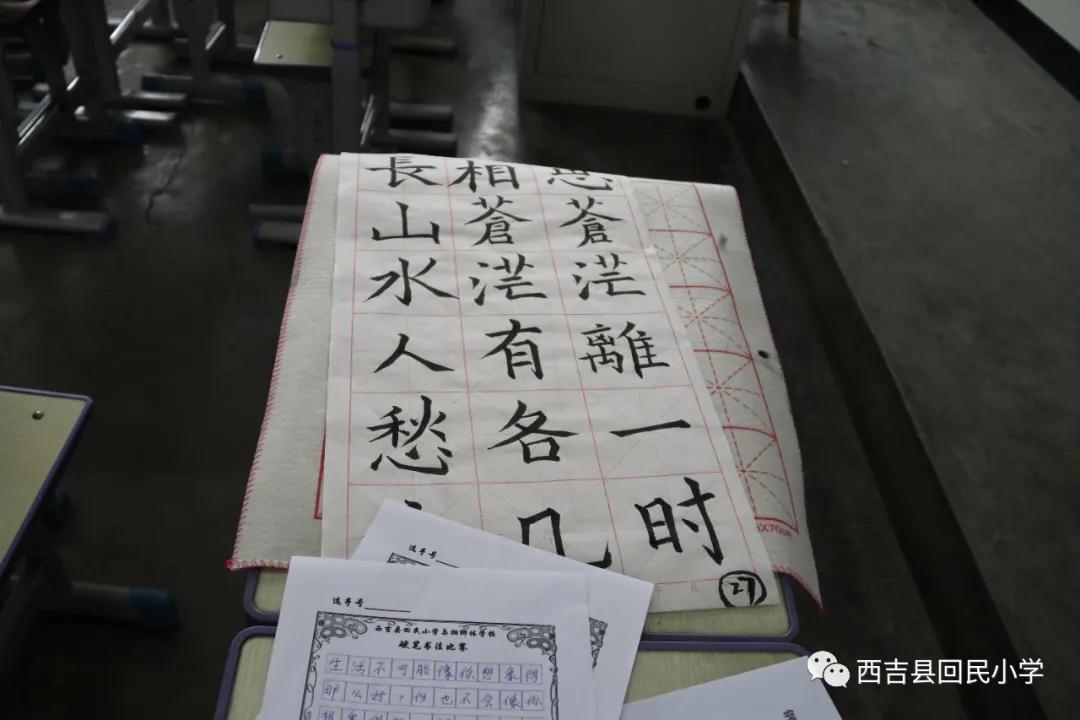 長相思
山蒼蒼
水茫茫
人有離
愁各一
几时
27
选手号
选手号
硬笔书法比赛
生活不可能像你想象得
那么好,但也不会像你
西吉县回民小学